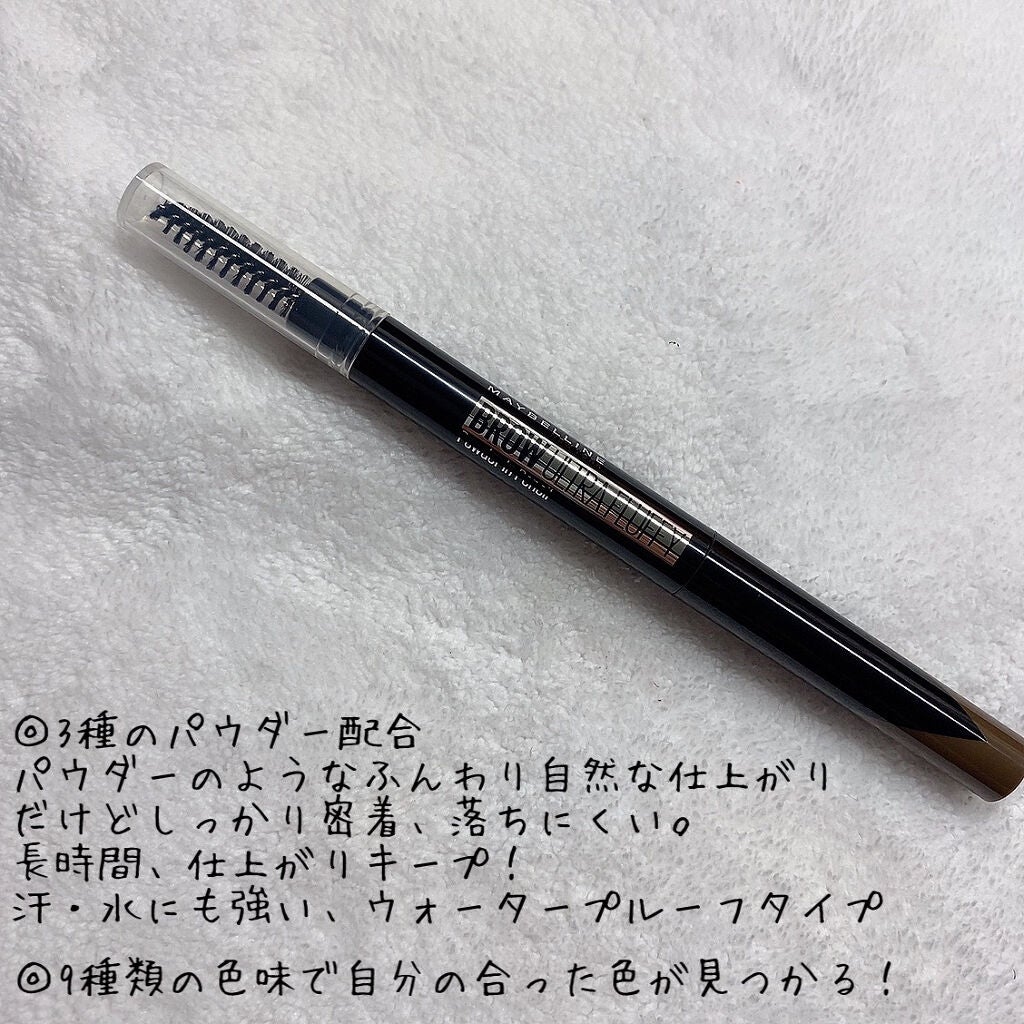 MAYBELLINE
BROW ULTRA FLUFFY
Powder In Pencil
◎3種のパウダー配合
パウダーのようなふんわり自然な仕上がり
だけどしっかり密着、落ちにくい。
長時間、仕上がりキープ！
汗・水にも強い、ウォータープルーフタイプ
◎9種類の色味で自分の合った色が見つかる！